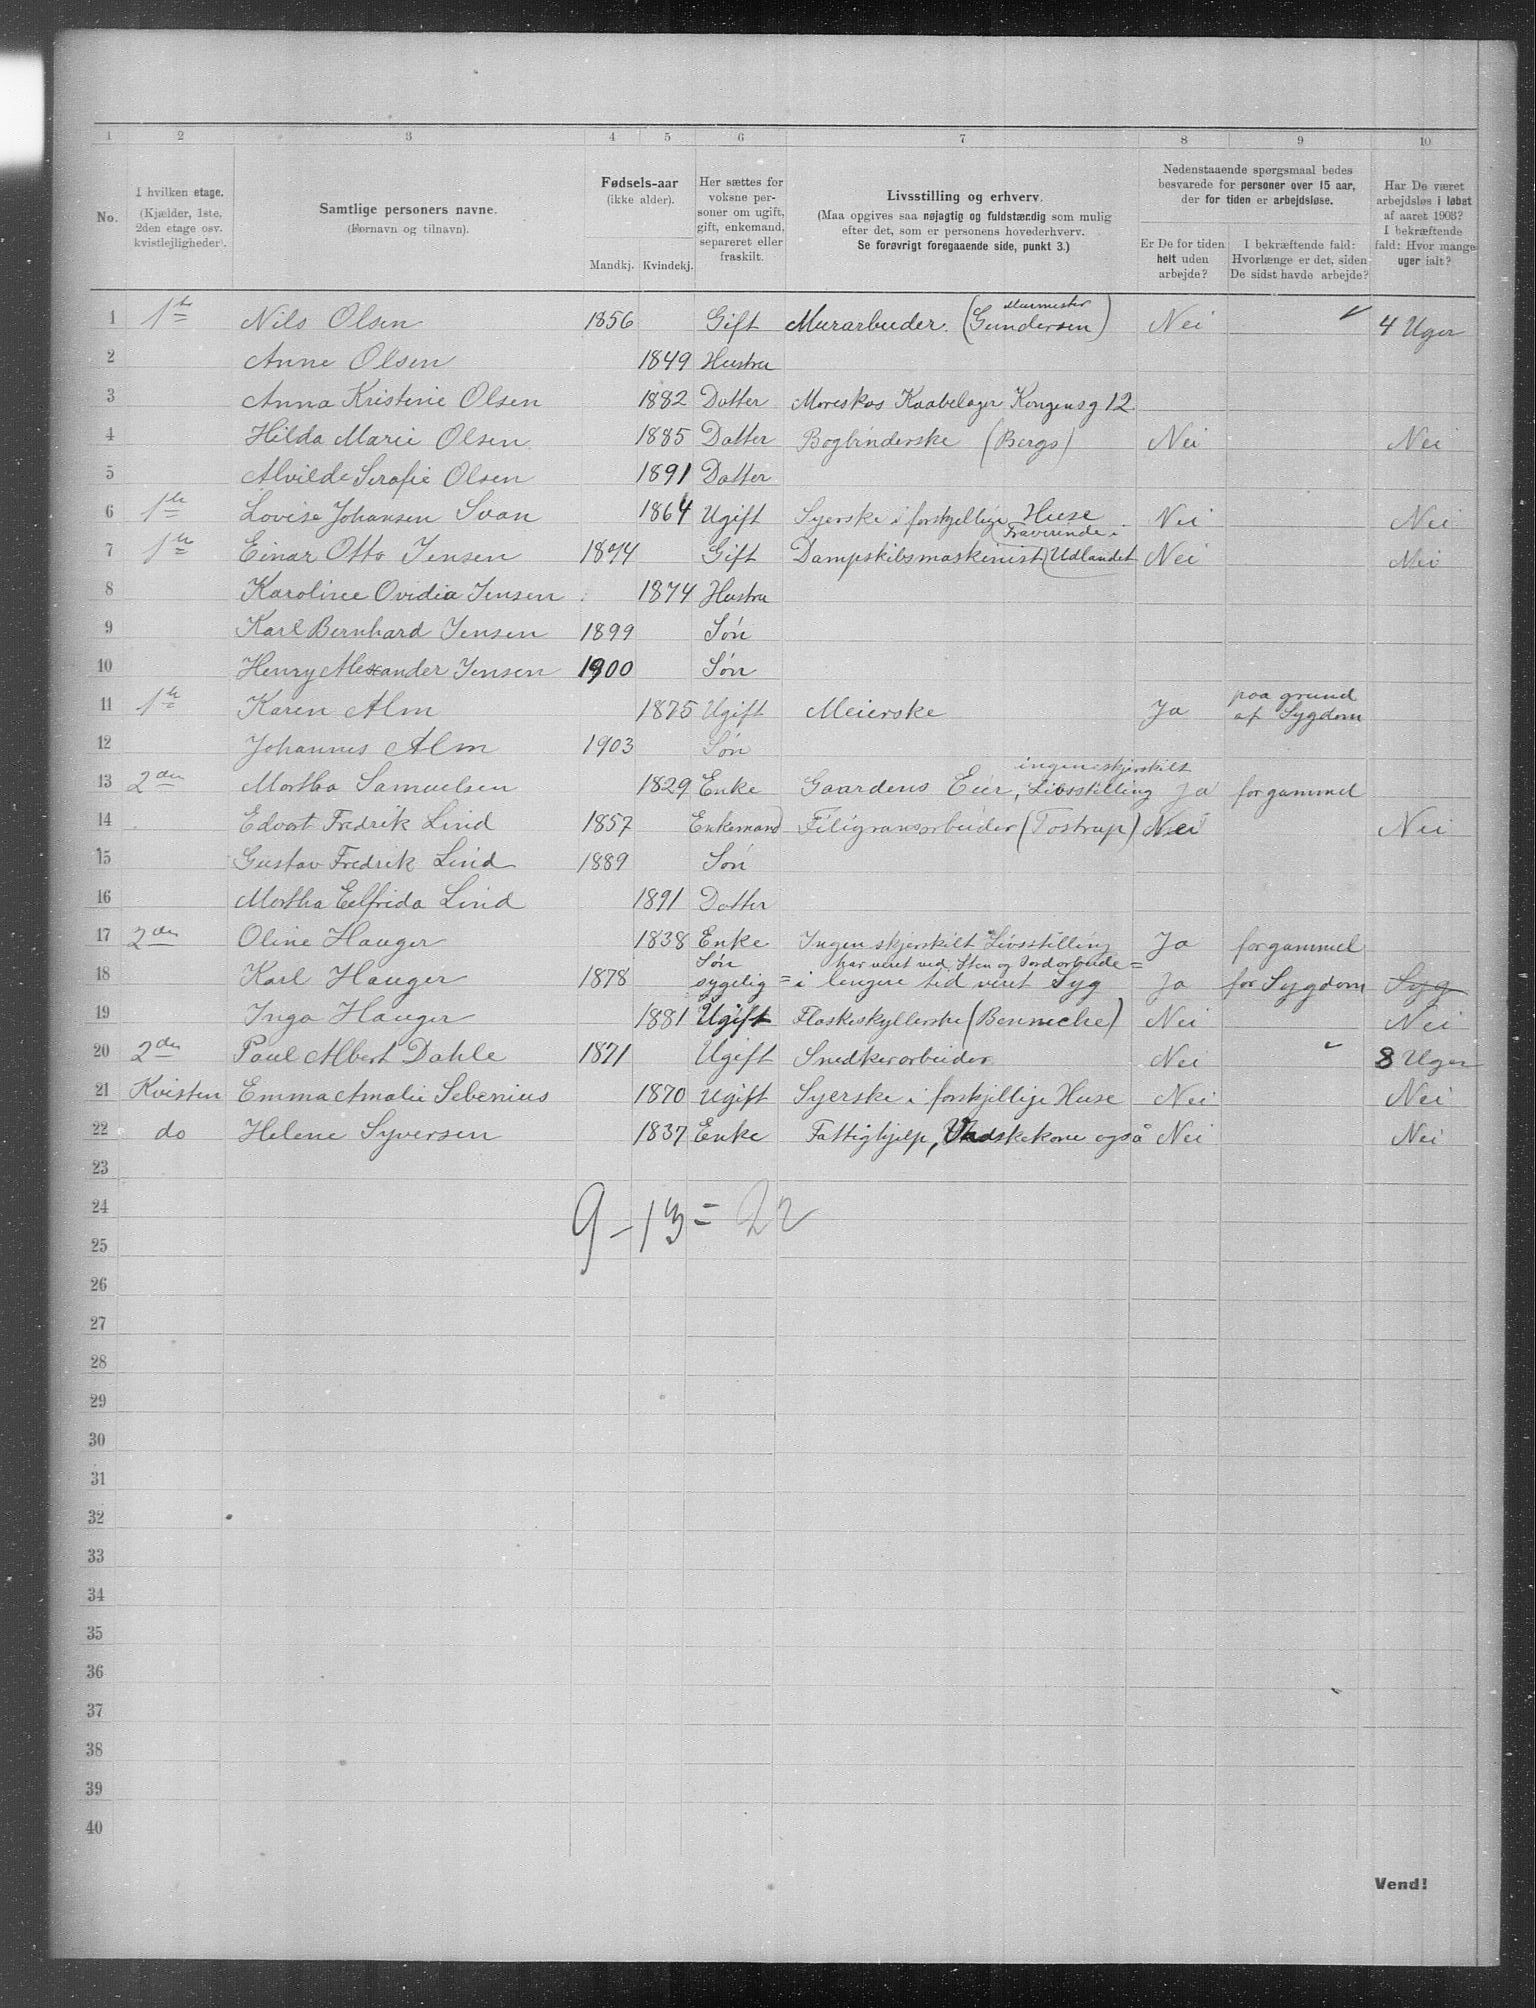 1 2 3 4 5 6 7 8 9 10
No.
I hvilken etage.
(Kjælder, 1ste,
2den etage osv.
kvistlejligheder).
Samtlige personers navne.
(Fornavn og tilnavn).
Fødsels-aar
(ikke alder).
Mandkj. Kvindekj.
Her sættes for
voksne per-
soner om ugift,
gift, enkemand,
separeret eller
fraskilt.
Livsstilling og erhverv.
(Maa opgives saa nøjagtig og fuldstændig som mulig
efter det, som er personens hovederhverv.
Se forøvrigt foregaaende side, punkt 3.)
Nedenstaaende spørgsmaal bedes
besvarede for personer over 15 aar,
der for tiden er arbejdsløse.
Er De for tiden
helt uden
arbejde?
I bekræftende fald:
Hvorlænge er det, siden
De sidst havde arbejde?
Har De været
arbejdsløs i løbet
af aaret 1903?
I bekræftende
fald: Hvor mange
uger ialt?
1 1ste Nils Olsen 1856 Gift Murarbeider (Murmester Gundersen) Nei 4 Uger
2 Anne Olsen 1849 Hustru
3 Anna Kristine Olsen 1882 Datter Moreskos Kaabelager Kongensg 12
4 Hilda Marie Olsen 1885 Datter Bogbinderske (Bergs) Nei Nei
5 Alvilde Serafie Olsen 1891 Datter
6 1ste Lovise Johansen Svan 1864 Ugift Syerske i forskjellige Huse Nei Nei
7 1ste Einar Otto Jensen 1874 Gift Dampskibsmaskinist (Fraværende Udlandet Nei Nei
8 Karoline Ovidia Jensen 1874 Hustru
9 Karl Bernhard Jensen 1899 Søn
10 Henry Alexander Jensen 1900 Søn
11 1ste Karen Alm 1875 Ugift Meierske Ja paa grund af Sygdom
12 Johannes Alm 1903 Søn
13 2den Martha Samuelsen 1829 Enke Gaardens Eier, ingen skjerskilt Livsstilling Ja for gammel
14 Edvart Fredrik Lind 1857 Enkemand Filigransarbeider (Tostrup) Nei Nei
15 Gustav Fredrik Lind 1889 Søn
16 Martha Elfrida Lind 1891 Datter
17 2den Oline Hauger 1838 Enke Ingen skjerskilt Livsstilling Ja for gammel
18 Karl Hauger 1878 Søn sygelig = har veret ved Sten og Jordarbeide = i lengere tid veret Syg Ja for Sygdom Syg
19 Inga Hauger 1881 Ugift Flaskeskyllerske (Benneche) Nei Nei
20 2den Paul Albert Dahle 1871 Ugift Snedkerarbeider Nei 8 Uger
21 Kvisten Emma Amalie Sebenius 1870 Ugift Syerske i forskjellige Huse Nei Nei
22 do Helene Syversen 1837 Enke Fattighjelp, Vadskekone også Nei Nei
23
24
9 - 13 = 22
25
26
27
28
29
30
31
32
33
34
35
36
37
38
39
40
Vend!